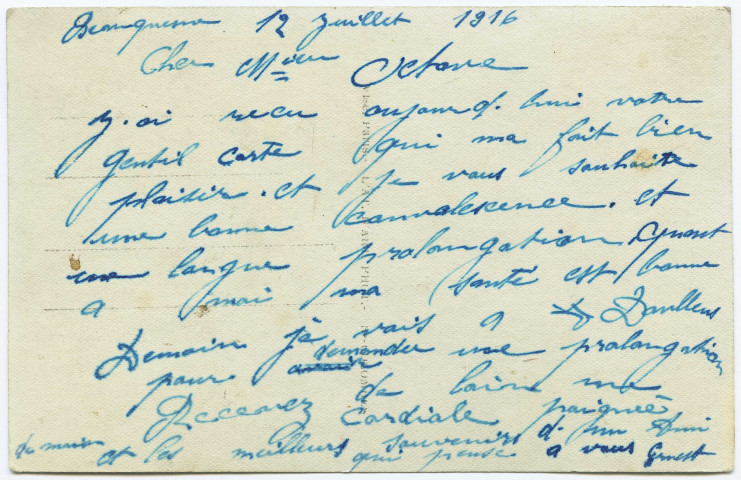 Beauquesne 12 Juillet 1916
Cher Mieu Octave
J. ai recu aujourd. hui votre
gentil carte qui ma fait bien
plaisir. et je vous souhaite
une bonne convalescence. et
une longue prolongation. Quant
a moi ma santé est bonne
Demain je vais a Doullens
pour avoir demander une prolongation
de
Recevez Cordiale poignée
de main et les meilleurs souvenirs d. un Ami
qui pense a vous Ernest